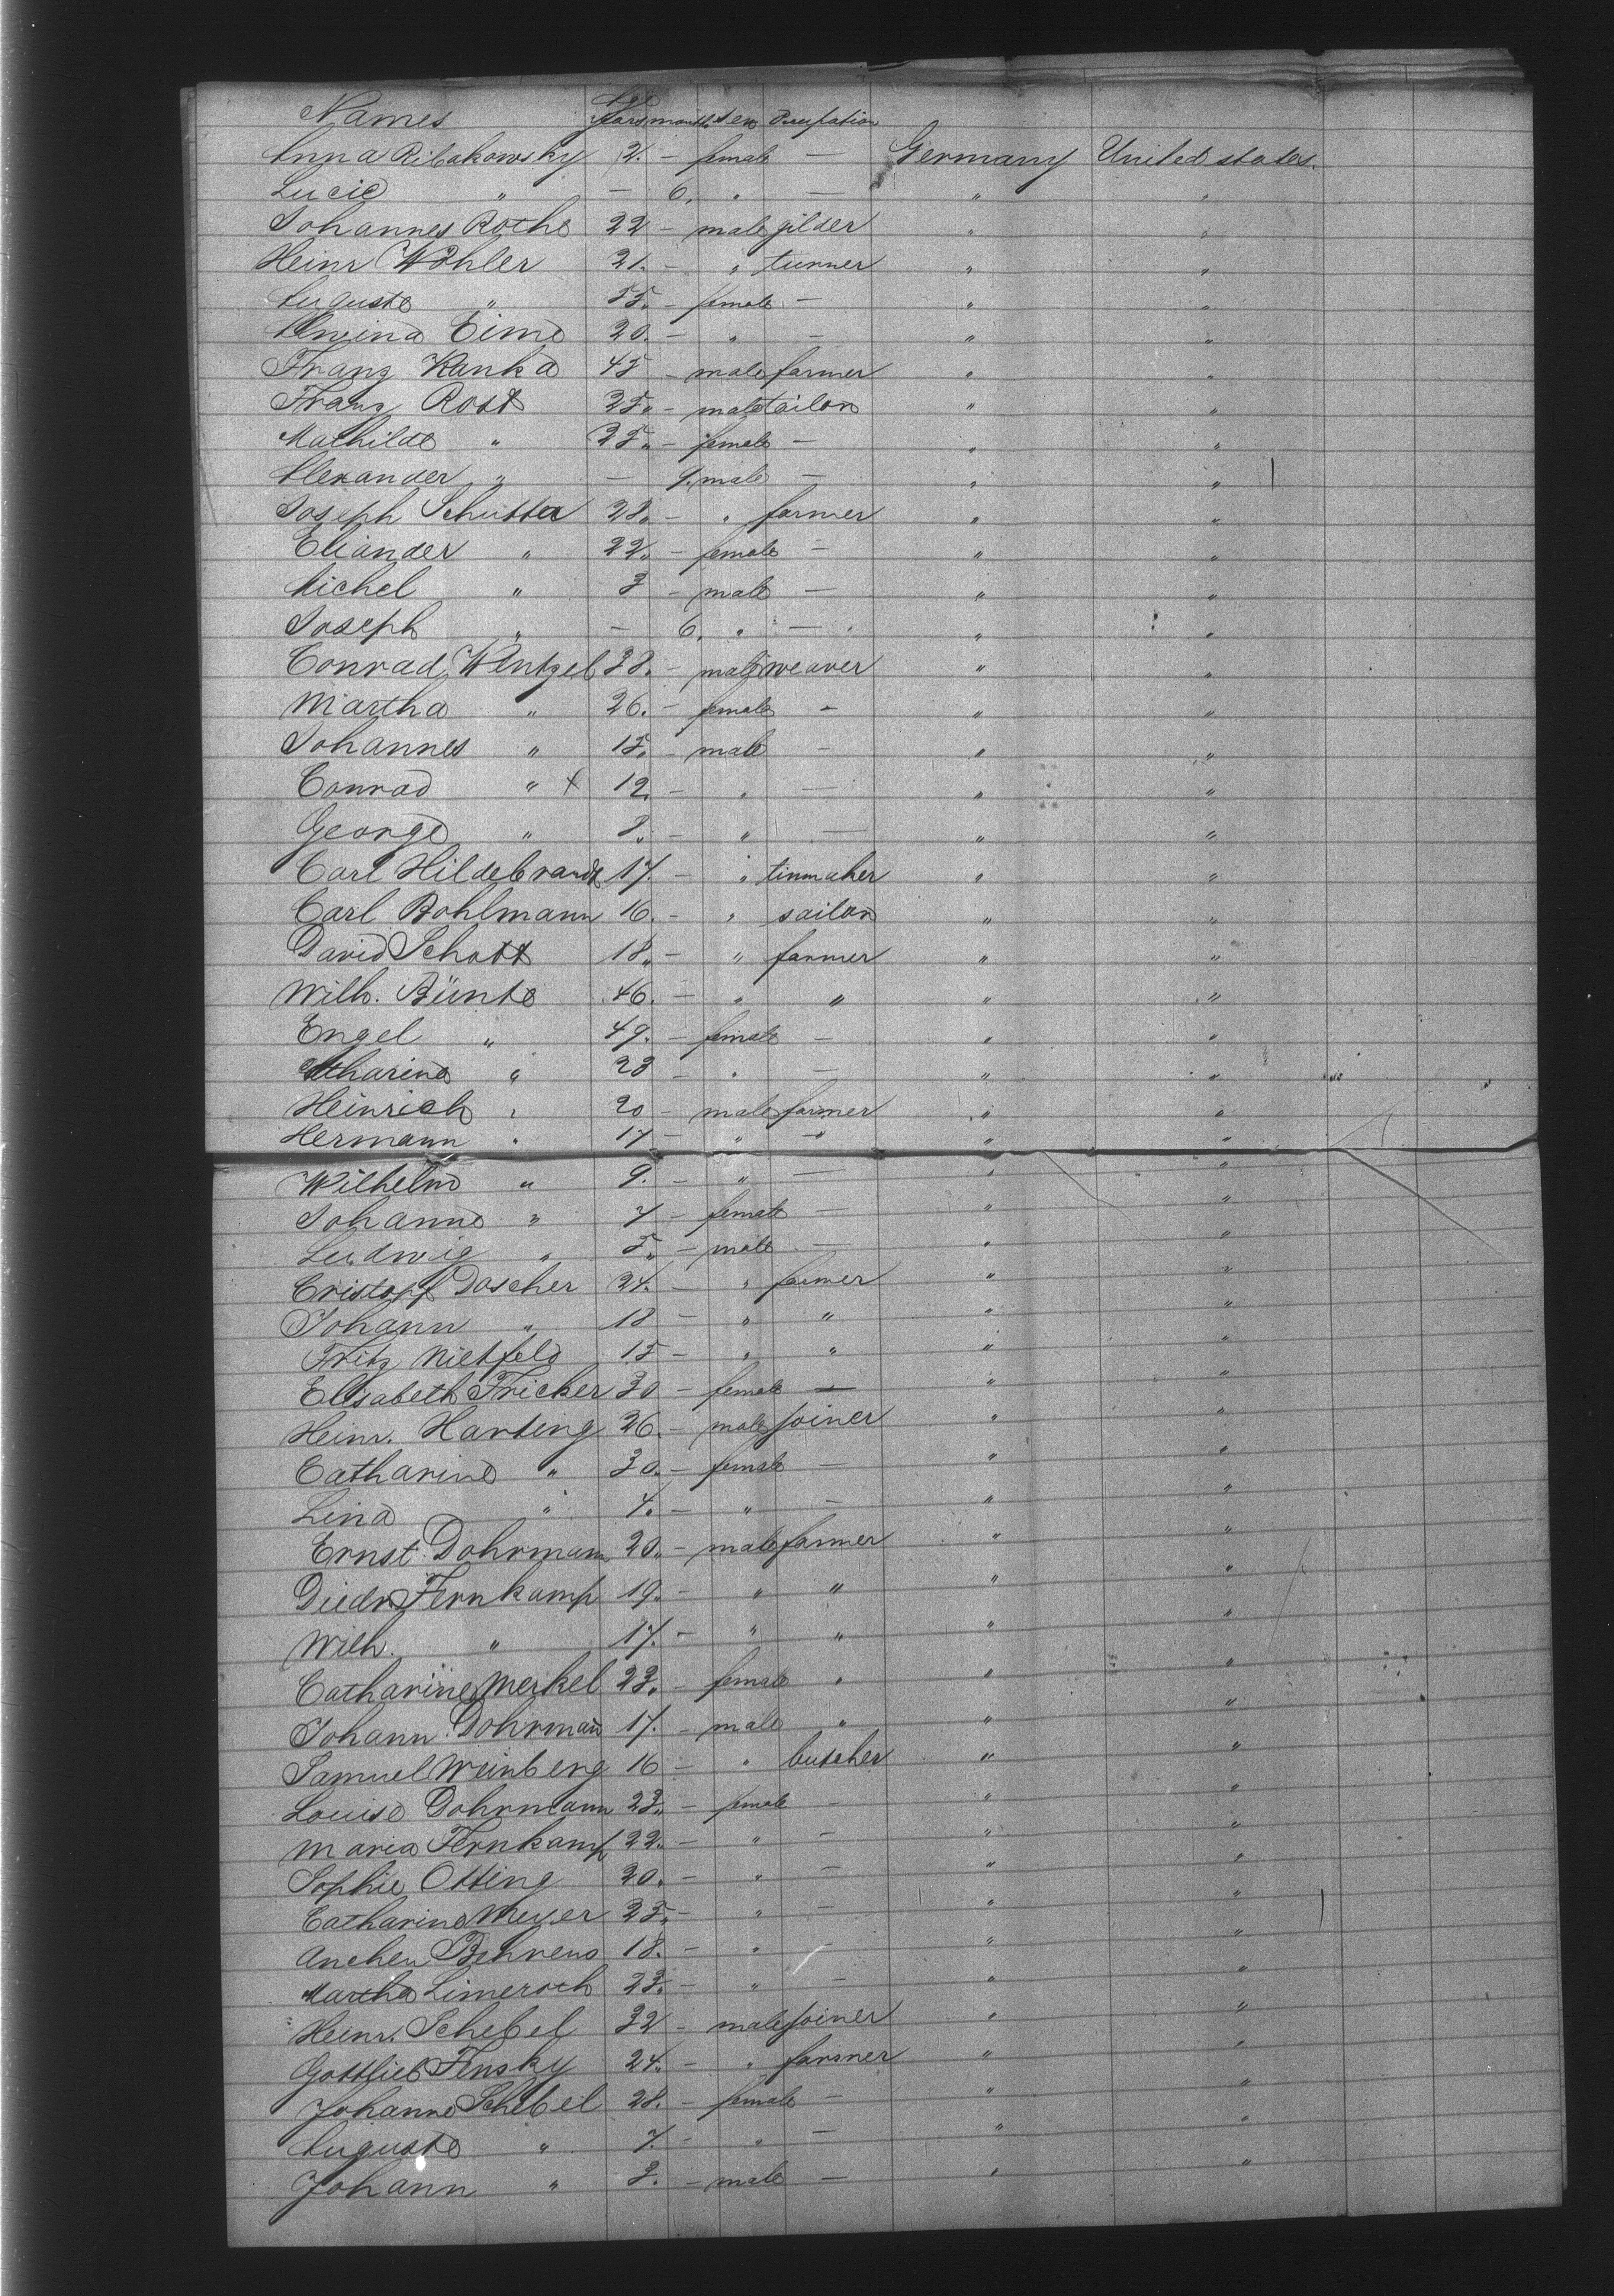 Names Age years months sex Occupation
Anna Ribakowsky 2. — female — Germany United states.
Lucie " — 6. " — " "
Johannes Rothe 22 — male gilder " "
Heinr Wöhler 21. — " turner " "
Auguste " 55. — female — " "
Alwina Eime 20. — " — " "
Franz Kanka 45 — male farmer " "
Franz Rost 25. — male tailor " "
Mathilde " 25. — female — " "
Alexander " — 9. male — " "
Joseph Schütter 28. — " farmer " "
Eliander " 22. — female — " "
Michel " 3 — male — " "
Joseph " — 6. " — " "
Conrad Wentzel 38. — male weaver " "
Martha " 26. — female — " "
Johannes " 15. — male — " "
Conrad " x 12. — " — " "
George " 8. — " — " "
Carl Hildebrandt 17. — " tinmaker " "
Carl Bohlmann 16. — " sailor " "
David Schott 18. — " farmer " "
Wilh. Bünte 46. — " " " "
Engel " 49. — female — " "
Catharine " 23 — " — " "
Heinrich " 20 — male farmer " "
Hermann " 17 — " " " "
Wilhelm " 9. — " — " "
Johanne " 7 — female — " "
Ludwig " 5. — male — " "
Cristoff Doscher 24. — " farmer " "
Johann " 18 — " " " "
Fritz Nietfeld 15 — " " " "
Elisabeth Fricker 30 — female — " "
Heinr. Harting 26. — male joiner " "
Catharine " 30. — female — " "
Lina " 4. — " — " "
Ernst Dohrmann 20. — male farmer " "
Diedr Fernkamp 19. — " " " "
Wilh. " 17. — " " " "
Catharine Merkel 23. — female " " "
Johann Dohrmañ 17. — male " " "
Samuel Weinberg 16 — " butcher " "
Louise Dohrmann 23. — female — " "
Maria Fernkamp 22. — " — " "
Sophie Otting 20. — " — " "
Catharine Meyer 25. — " — " "
Anchen Behrens 18. — " — " "
Martha Limeroth 23. — " — " "
Heinr. Schebel 32 — male joiner " "
Gottlieb Fensky 24. — " farmer " "
Johanne Schebel 28. — female — " "
Auguste " 7. — " — " "
Johann " 3. — male — " "